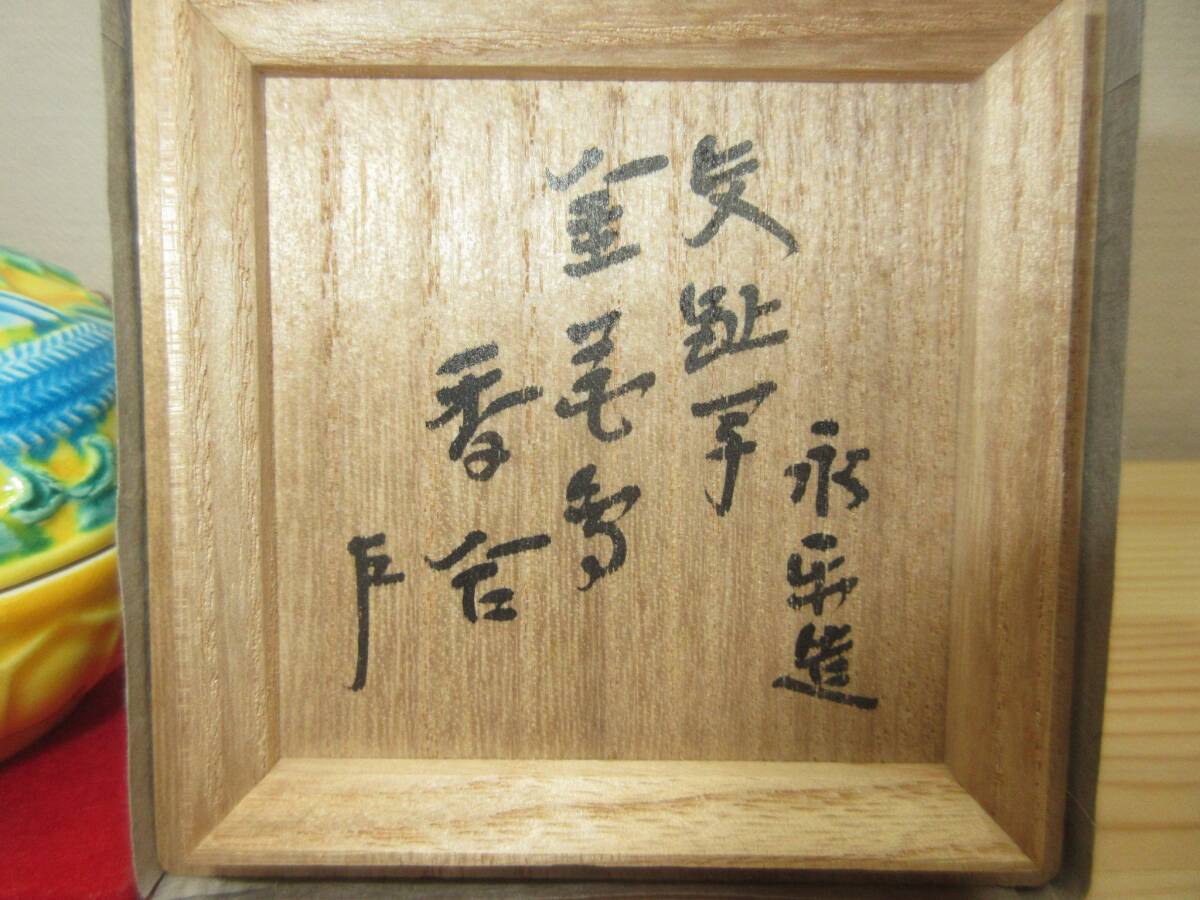 永楽造
交趾写
金花鳥
香合